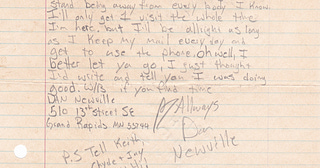 stand being away from every body I know.
I'll only get 1 visit the whole time
I'm here, but I'll be allright as long
as I keep my mail every day and
get to use the phone. oh well, I
better let ya go, I just thought
I'd write and tell you I was doing
good. W/B/S if you find time
DAN Newville
510 13th street SE
Grand Rapids MN 55744
Allways
Dan
Newville
P.S Tell Keith,
Clyde + Jay